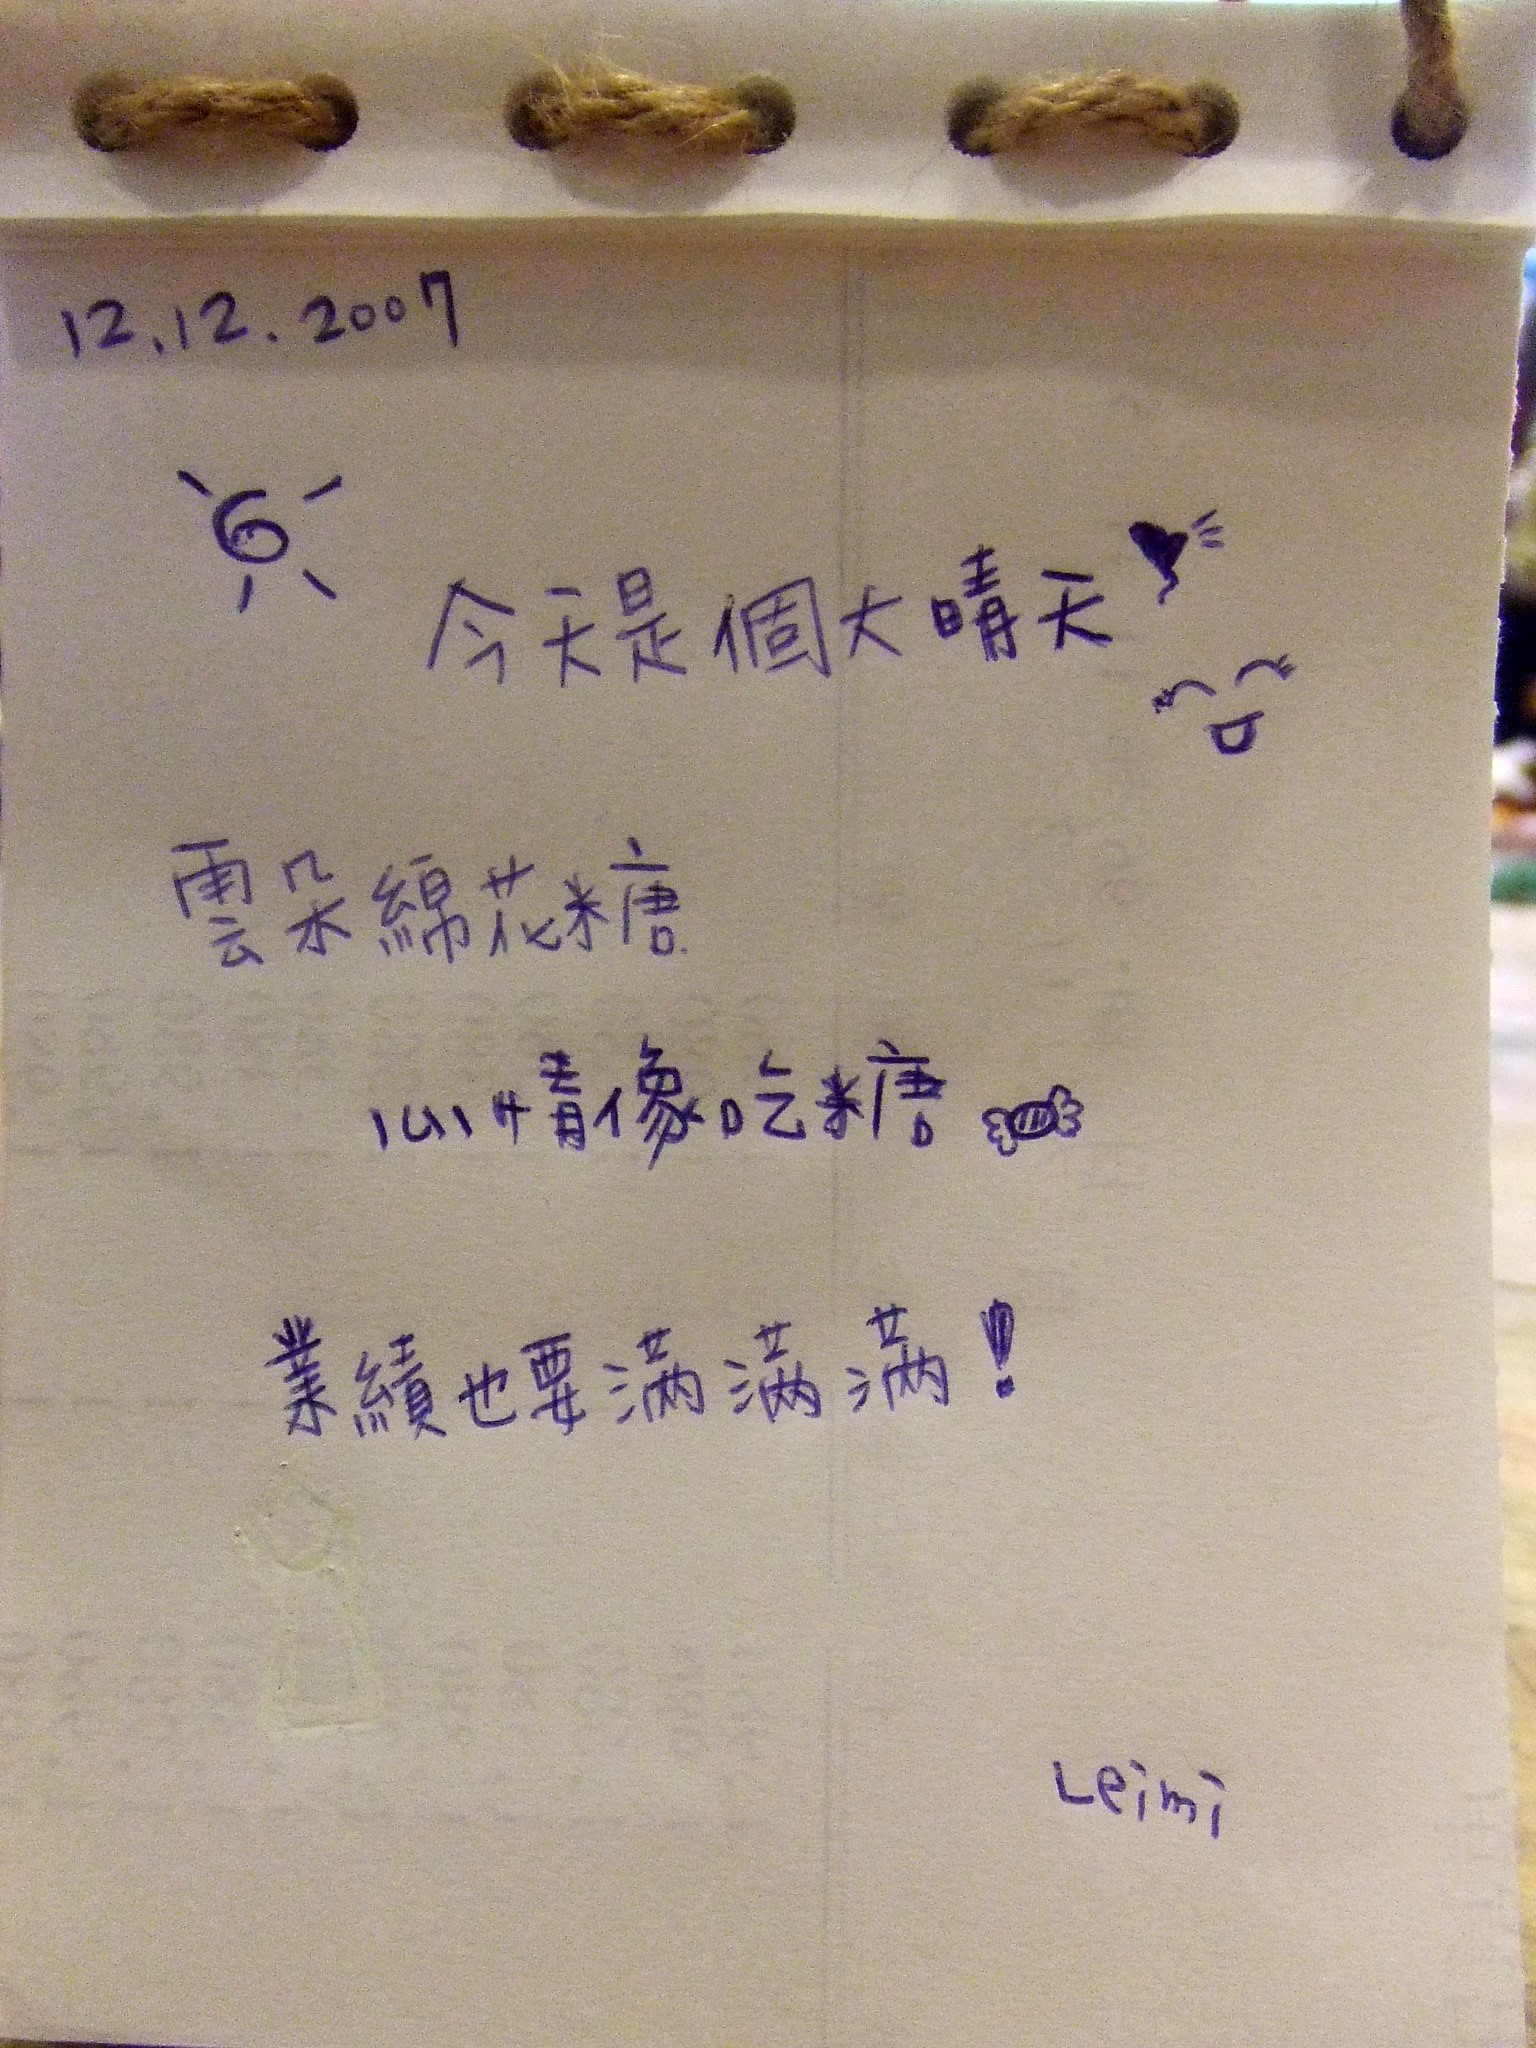 12.12.2007
今天是個大晴天
雲朵綿花糖
心情像吃糖
業績也要滿滿滿!
Leimi